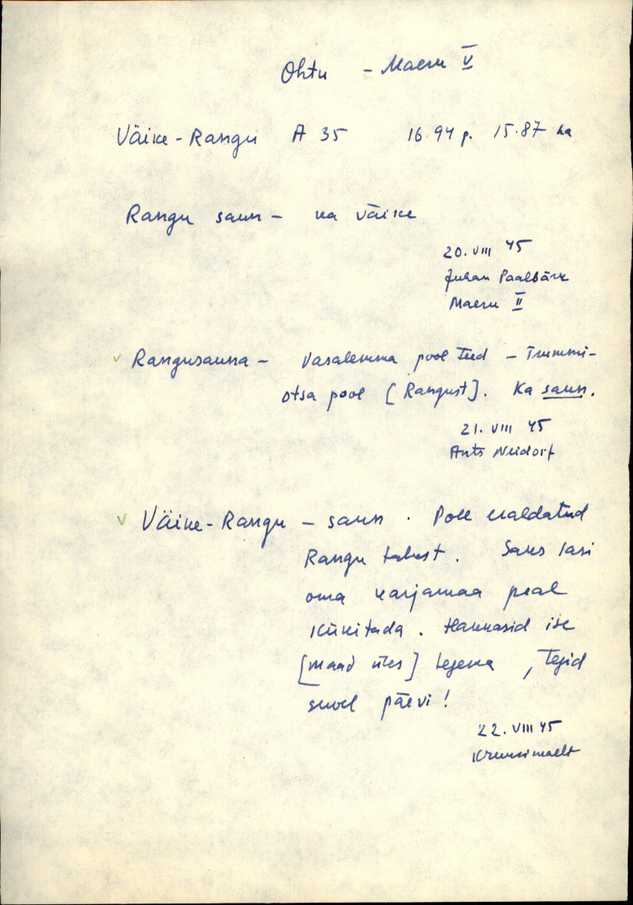 Ohtu - Maeru V
Väike-Rangu A 35 16.94 p. 15.87 ha
Rangu saun - ka väike
20. VIII 45
Juhan Paalbärk
Maeru II
Rangusauna - Vasalemma pool teed - Trummi-
otsa pool [Rangust]. Ka saun.
21. VIII 45
Ants Neidorf
Väike-Rangu - saun. Pole
Rangu talust. Saks lasi
oma karjamaa peal
kükitada. Hakkasid ise
[maad üles] tegema, tegid
seal päevi!
22. VIII 45